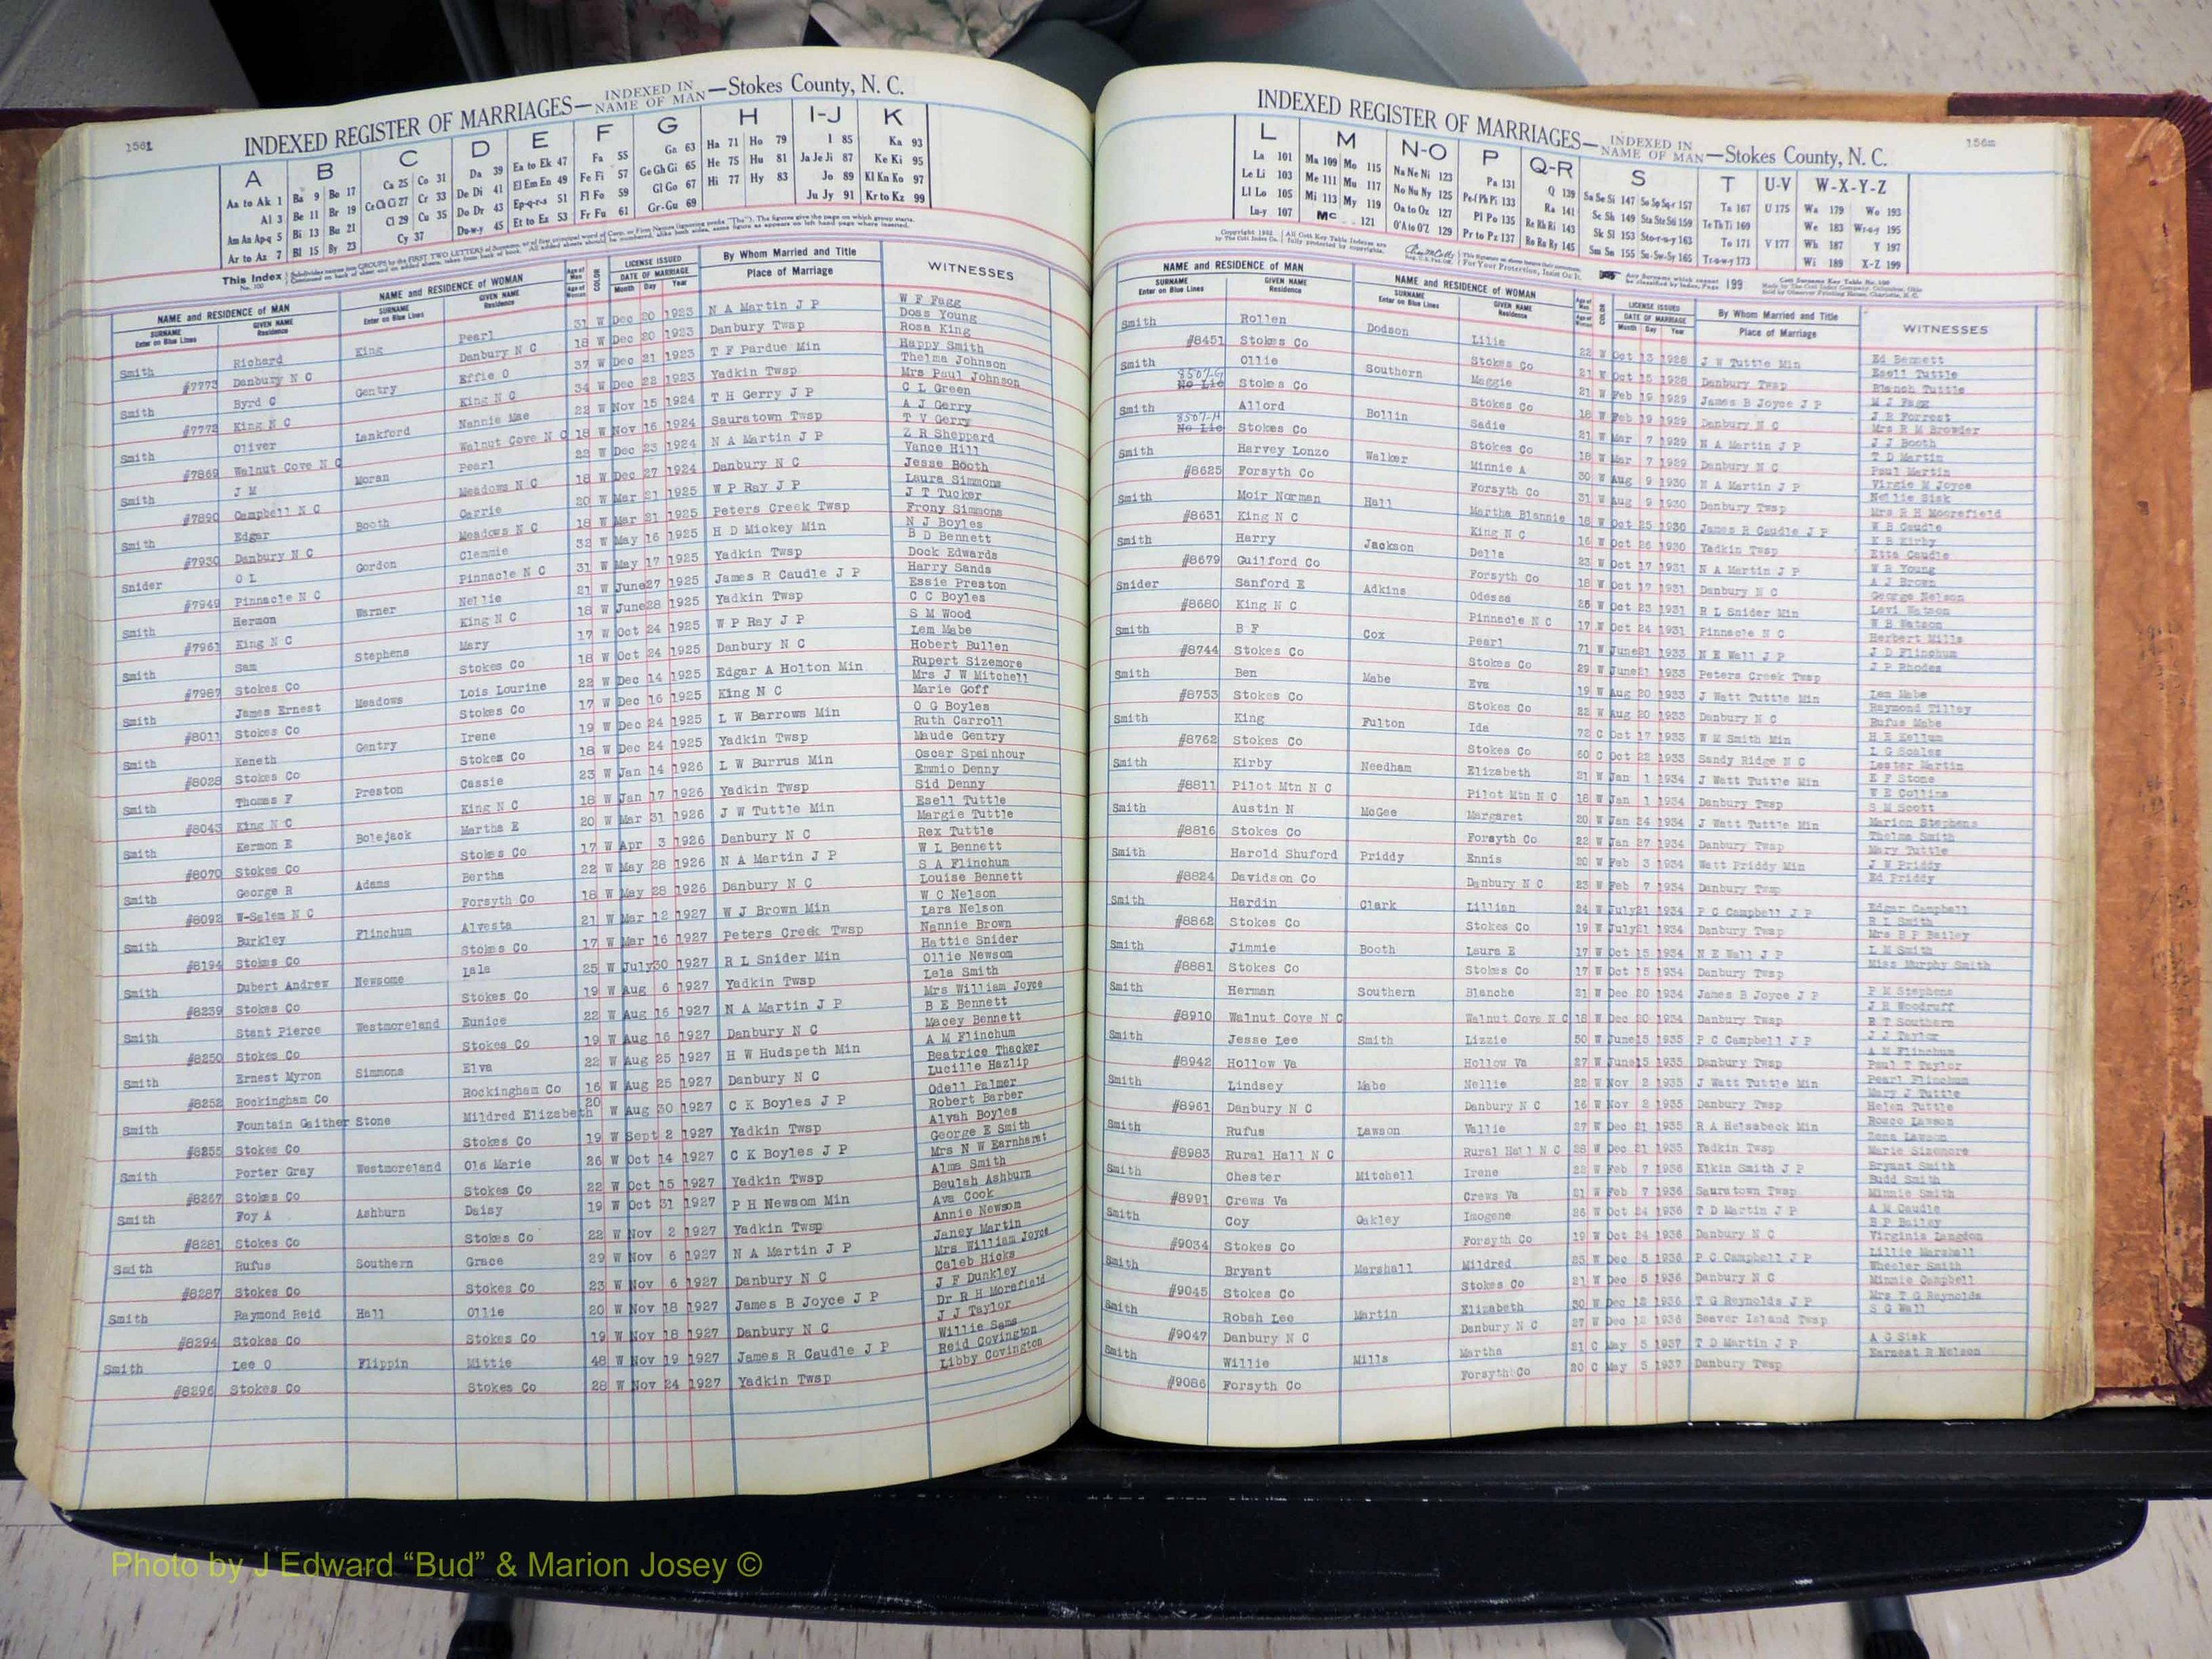 156l
INDEXED REGISTER OF MARRIAGES— INDEXED IN NAME OF MAN —Stokes County, N. C.
A B C D E F G H I-J K
Aa to Ak 1 Ba 9 Bo 17 Ca 25 Co 31 Da 39 Ea to Ek 47 Fa 55 Ga 63 Ha 71 Ho 79 I 85 Ka 93
Al 3 Be 11 Br 19 Ce Ch Ci 27 Cr 33 De Di 41 El Em En 49 Fe Fi 57 Ge Gh Gi 65 He 75 Hu 81 Ja Je Ji 87 Ke Ki 95
Am An Ap-q 5 Bi 13 Bu 21 Cl 29 Cu 35 Do Dr 43 Ep-q-r-s 51 Fl Fo 59 Gl Go 67 Hi 77 Hy 83 Jo 89 Kl Kn Ko 97
Ar to Az 7 Bl 15 By 23 Cy 37 Du-w-y 45 Et to Ez 53 Fr Fu 61 Gr-Gu 69 Ju Jy 91 Kr to Kz 99
This Index No. 100
NAME and RESIDENCE of MAN NAME and RESIDENCE of WOMAN LICENSE ISSUED By Whom Married and Title WITNESSES
SURNAME Enter on Blue Lines GIVEN NAME Residence SURNAME Enter on Blue Lines GIVEN NAME Residence Age of Man Age of Woman COLOR DATE OF MARRIAGE Month Day Year Place of Marriage
Smith Richard King Pearl 31 W Dec 20 1923 N A Martin J P W F Fagg
Doss Young
#7773 Danbury N C Danbury N C 18 W Dec 20 1923 Danbury Twsp Rosa King
Smith Byrd C Gentry Effie O 37 W Dec 21 1923 T F Pardue Min Happy Smith
Thelma Johnson
#7772 King N C King N C 34 W Dec 22 1923 Yadkin Twsp Mrs Paul Johnson
Smith Oliver Lankford Nannie Mae 22 W Nov 15 1924 T H Gerry J P C L Green
A J Gerry
#7869 Walnut Cove N C Walnut Cove N C 18 W Nov 16 1924 Sauratown Twsp T V Gerry
Smith J M Moran Pearl 22 W Dec 23 1924 N A Martin J P Z R Sheppard
Vance Hill
#7890 Campbell N C Meadows N C 18 W Dec 27 1924 Danbury N C Jesse Booth
Smith Edgar Booth Carrie 20 W Mar 21 1925 W P Ray J P Laura Simmons
J T Tucker
#7930 Danbury N C Meadows N C 18 W Mar 21 1925 Peters Creek Twsp Frony Simmons
Snider O L Gordon Clemmie 32 W May 16 1925 H D Mickey Min N J Boyles
B D Bennett
#7949 Pinnacle N C Pinnacle N C 31 W May 17 1925 Yadkin Twsp Dock Edwards
Smith Hermon Warner Nellie 21 W June27 1925 James R Caudle J P Harry Sands
Essie Preston
#7961 King N C King N C 18 W June28 1925 Yadkin Twsp C C Boyles
Smith Sam Stephens Mary 17 W Oct 24 1925 W P Ray J P S M Wood
Lem Mabe
#7987 Stokes Co Stokes Co 18 W Oct 24 1925 Danbury N C Hobert Bullen
Smith James Ernest Meadows Lois Lourine 22 W Dec 14 1925 Edgar A Holton Min Rupert Sizemore
Mrs J W Mitchell
#8011 Stokes Co Stokes Co 17 W Dec 16 1925 King N C Marie Goff
Smith Keneth Gentry Irene 19 W Dec 24 1925 L W Barrows Min O G Boyles
Ruth Carroll
#8028 Stokes Co Stokes Co 18 W Dec 24 1925 Yadkin Twsp Maude Gentry
Smith Thomas F Preston Cassie 23 W Jan 14 1926 L W Burrus Min Oscar Spainhour
Emmio Denny
#8043 King N C King N C 18 W Jan 17 1926 Yadkin Twsp Sid Denny
Smith Kermon E Bolejack Martha E 20 W Mar 31 1926 J W Tuttle Min Esell Tuttle
Margie Tuttle
#8070 Stokes Co Stokes Co 17 W Apr 3 1926 Danbury N C Rex Tuttle
Smith George R Adams Bertha 22 W May 28 1926 N A Martin J P W L Bennett
S A Flinchum
#8092 W-Salem N C Forsyth Co 18 W May 28 1926 Danbury N C Louise Bennett
Smith Burkley Flinchum Alvesta 21 W Mar 12 1927 W J Brown Min W C Nelson
Lara Nelson
#8194 Stokes Co Stokes Co 17 W Mar 16 1927 Peters Creek Twsp Nannie Brown
Smith Dubert Andrew Newsome Lala 25 W July30 1927 R L Snider Min Hattie Snider
Ollie Newsom
#8239 Stokes Co Stokes Co 19 W Aug 6 1927 Yadkin Twsp Lela Smith
Smith Stant Pierce Westmoreland Eunice 22 W Aug 16 1927 N A Martin J P Mrs William Joyce
B E Bennett
#8250 Stokes Co Stokes Co 19 W Aug 16 1927 Danbury N C Macey Bennett
Smith Ernest Myron Simmons Elva 22 W Aug 25 1927 H W Hudspeth Min A M Flinchum
Beatrice Thacker
#8252 Rockingham Co Rockingham Co 16 W Aug 25 1927 Danbury N C Lucille Hazlip
Smith Fountain Gaither Stone Mildred Elizabeth 20 W Aug 30 1927 C K Boyles J P Odell Palmer
Robert Barber
#8255 Stokes Co Stokes Co 19 W Sept 2 1927 Yadkin Twsp Alvah Boyles
Smith Porter Gray Westmoreland Ola Marie 26 W Oct 14 1927 C K Boyles J P George E Smith
Mrs N W Earnharst
#8267 Stokes Co Stokes Co 22 W Oct 15 1927 Yadkin Twsp Alma Smith
Smith Foy A Ashburn Daisy 19 W Oct 31 1927 P H Newsom Min Beulah Ashburn
Ava Cook
#8281 Stokes Co Stokes Co 22 W Nov 2 1927 Yadkin Twsp Annie Newsom
Smith Rufus Southern Grace 29 W Nov 6 1927 N A Martin J P Janey Martin
Mrs William Joyce
#8287 Stokes Co Stokes Co 23 W Nov 6 1927 Danbury N C Caleb Hicks
Smith Raymond Reid Hall Ollie 20 W Nov 18 1927 James B Joyce J P J F Dunkley
Dr R H Morefield
#8294 Stokes Co Stokes Co 19 W Nov 18 1927 Danbury N C J J Taylor
Smith Lee O Flippin Mittie 48 W Nov 19 1927 James R Caudle J P Willie Sams
Reid Covington
#8296 Stokes Co Stokes Co 28 W Nov 24 1927 Yadkin Twsp Libby Covington
156m
INDEXED REGISTER OF MARRIAGES— INDEXED IN NAME OF MAN —Stokes County, N. C.
L M N-O P Q-R S T U-V W-X-Y-Z
La 101 Ma 109 Mo 115 Na Ne Ni 123 Pa 131 Q 139 Sa Se Si 147 So Sp Sq-r 157 Ta 167 U 175 Wa 179 Wo 193
Le Li 103 Me 111 Mu 117 No Nu Ny 125 Pe Pf Ph Pi 133 Ra 141 Sc Sh 149 Sta Ste Sti 159 Te Th Ti 169 We 183 Wr-s-y 195
Ll Lo 105 Mi 113 My 119 Oa to Oz 127 Pl Po 135 Re Rh Ri 143 Sk Sl 153 Sto-r-u-y 163 To 171 V 177 Wh 187 Y 197
Lu-y 107 Mc 121 O'A to O'Z 129 Pr to Pz 137 Ro Ru Ry 145 Sm Sn 155 Su-Sw-Sy 165 Tr-u-w-y 173 Wi 189 X-Z 199
NAME and RESIDENCE of MAN NAME and RESIDENCE of WOMAN LICENSE ISSUED By Whom Married and Title WITNESSES
SURNAME Enter on Blue Lines GIVEN NAME Residence SURNAME Enter on Blue Lines GIVEN NAME Residence DATE OF MARRIAGE Month Day Year Place of Marriage
Smith Rollen Dodson Lilia 22 W Oct 13 1928 J W Tuttle Min Ed Bennett
Esell Tuttle
#8451 Stokes Co Stokes Co 21 W Oct 15 1928 Danbury Twsp Blanch Tuttle
Smith Ollie Southern Maggie 21 W Feb 19 1929 James B Joyce J P M J Fagg
J R Forrest
8507-G
No Lic Stokes Co Stokes Co 18 W Feb 19 1929 Danbury N C Mrs R M Browder
Smith Allord Bollin Sadie 21 W Mar 7 1929 N A Martin J P J J Booth
T D Martin
8507-H
No Lic Stokes Co Stokes Co 18 W Mar 7 1929 Danbury N C Paul Martin
Smith Harvey Lonzo Walker Minnie A 30 W Aug 9 1930 N A Martin J P Virgie M Joyce
Nellie Sisk
#8625 Forsyth Co Forsyth Co 31 W Aug 9 1930 Danbury Twsp Mrs R H Moorefield
Smith Moir Norman Hall Martha Blannie 18 W Oct 25 1930 James R Caudle J P W B Caudle
K B Kirby
#8631 King N C King N C 16 W Oct 26 1930 Yadkin Twsp Etta Caudle
Smith Harry Jackson Della 23 W Oct 17 1931 N A Martin J P W B Young
A J Brown
#8679 Guilford Co Forsyth Co 18 W Oct 17 1931 Danbury N C George Nelson
Snider Sanford E Adkins Odessa 25 W Oct 23 1931 R L Snider Min Levi Watson
W B Watson
#8680 King N C Pinnacle N C 17 W Oct 24 1931 Pinnacle N C Herbert Mills
Smith B F Cox Pearl 71 W June21 1933 N E Wall J P J D Flinchum
J P Rhodes
#8744 Stokes Co Stokes Co 29 W June21 1933 Peters Creek Twsp
Smith Ben Mabe Eva 19 W Aug 20 1933 J Watt Tuttle Min Lem Mabe
Raymond Tilley
#8753 Stokes Co Stokes Co 22 W Aug 20 1933 Danbury N C Rufus Mabe
Smith King Fulton Ida 72 C Oct 17 1933 W M Smith Min H R Kellum
L G Scales
#8762 Stokes Co Stokes Co 60 C Oct 22 1933 Sandy Ridge N C Lester Martin
Smith Kirby Needham Elizabeth 21 W Jan 1 1934 J Watt Tuttle Min E F Stone
W E Collins
#8811 Pilot Mtn N C Pilot Mtn N C 18 W Jan 1 1934 Danbury Twsp S M Scott
Smith Austin N McGee Margaret 20 W Jan 24 1934 J Watt Tuttle Min Marion Stephens
Thelma Smith
#8816 Stokes Co Forsyth Co 22 W Jan 27 1934 Danbury Twsp Mary Tuttle
Smith Harold Shuford Priddy Ennis 20 W Feb 3 1934 Watt Priddy Min J W Priddy
Ed Priddy
#8824 Davidson Co Danbury N C 23 W Feb 7 1934 Danbury Twsp
Smith Hardin Clark Lillian 24 W July21 1934 P C Campbell J P Edgar Campbell
R L Smith
#8862 Stokes Co Stokes Co 19 W July21 1934 Danbury Twsp Mrs B P Bailey
Smith Jimmie Booth Laura E 17 W Oct 15 1934 N E Wall J P L M Smith
Miss Murphy Smith
#8881 Stokes Co Stokes Co 17 W Oct 15 1934 Danbury Twsp
Smith Herman Southern Blanche 21 W Dec 20 1934 James B Joyce J P P M Stephens
J H Woodruff
#8910 Walnut Cove N C Walnut Cove N C 18 W Dec 20 1934 Danbury Twsp R T Southern
Smith Jesse Lee Smith Lizzie 50 W June15 1935 P C Campbell J P J J Taylor
A M Flinchum
#8942 Hollow Va Hollow Va 27 W June15 1935 Danbury Twsp Paul T Taylor
Smith Lindsey Mabe Nellie 22 W Nov 2 1935 J Watt Tuttle Min Pearl Flinchum
Mary J Tuttle
#8961 Danbury N C Danbury N C 16 W Nov 2 1935 Danbury Twsp Helen Tuttle
Smith Rufus Lawson Vallie 27 W Dec 21 1935 R A Helsabeck Min Rosco Lawson
Zena Lawson
#8983 Rural Hall N C Rural Hall N C 28 W Dec 21 1935 Yadkin Twsp Marie Sizemore
Smith Chester Mitchell Irene 22 W Feb 7 1936 Elkin Smith J P Bryant Smith
Budd Smith
#8991 Crews Va Crews Va 21 W Feb 7 1936 Sauratown Twsp Minnie Smith
Smith Coy Oakley Imogene 26 W Oct 24 1936 T D Martin J P A M Caudle
B P Bailey
#9034 Stokes Co Forsyth Co 19 W Oct 24 1936 Danbury N C Virginia Langdon
Smith Bryant Marshall Mildred 25 W Dec 5 1936 P C Campbell J P Lillie Marshall
Wheeler Smith
#9045 Stokes Co Stokes Co 21 W Dec 5 1936 Danbury N C Minnie Campbell
Smith Robah Lee Martin Elizabeth 30 W Dec 12 1936 T G Reynolds J P Mrs T G Reynolds
S G Wall
#9047 Danbury N C Danbury N C 27 W Dec 12 1936 Beaver Island Twsp
Smith Willie Mills Martha 21 C May 5 1937 T D Martin J P A G Sisk
Earnest R Nelson
#9086 Forsyth Co Forsyth Co 20 C May 5 1937 Danbury Twsp
Photo by J Edward “Bud” & Marion Josey ©